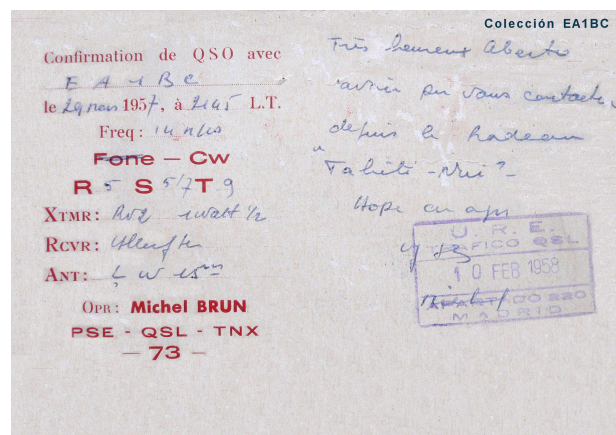 Colección EA1BC
Confirmation de QSO avec
EA1BC
le 29 mars 1957, à 2145 L.T.
Freq: 14 n/cs
Fone — Cw
R 5 S 5/7 T 9
XTMR: 1 watt 1/2
RCVR:
ANT: L W 15 m
OPR: Michel BRUN
PSE - QSL - TNX
— 73 —
Très heureux Alberto
avoir pu vous contacter
depuis le Radeau
"Tahiti-Nui"-
Hope cu agn
73
Michel
U. R. E.
TRAFICO QSL
10 FEB 1958
APARTADO 220
MADRID